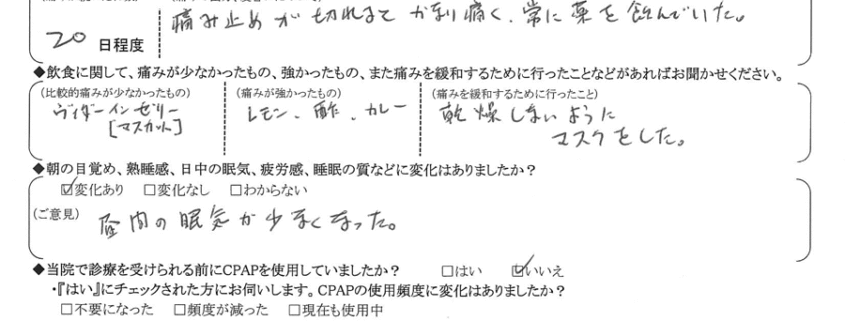 痛み止めが切れるとかなり痛く、常に薬を飲んでいた。
20 日程度
◆飲食に関して、痛みが少なかったもの、強かったもの、また痛みを緩和するために行ったことなどがあればお聞かせください。
(比較的痛みが少なかったもの) (痛みが強かったもの) (痛みを緩和するために行ったこと)
ヴィダーインゼリー レモン、酢、カレー 乾燥しないように
[マスカット] マスクをした。
◆朝の目覚め、熟睡感、日中の眠気、疲労感、睡眠の質などに変化はありましたか？
☑変化あり □変化なし □わからない
(ご意見) 昼間の眠気が少なくなった。
◆当院で診療を受けられる前にCPAPを使用していましたか？ □はい ☑いいえ
・『はい』にチェックされた方にお伺いします。CPAPの使用頻度に変化はありましたか？
□不要になった □頻度が減った □現在も使用中